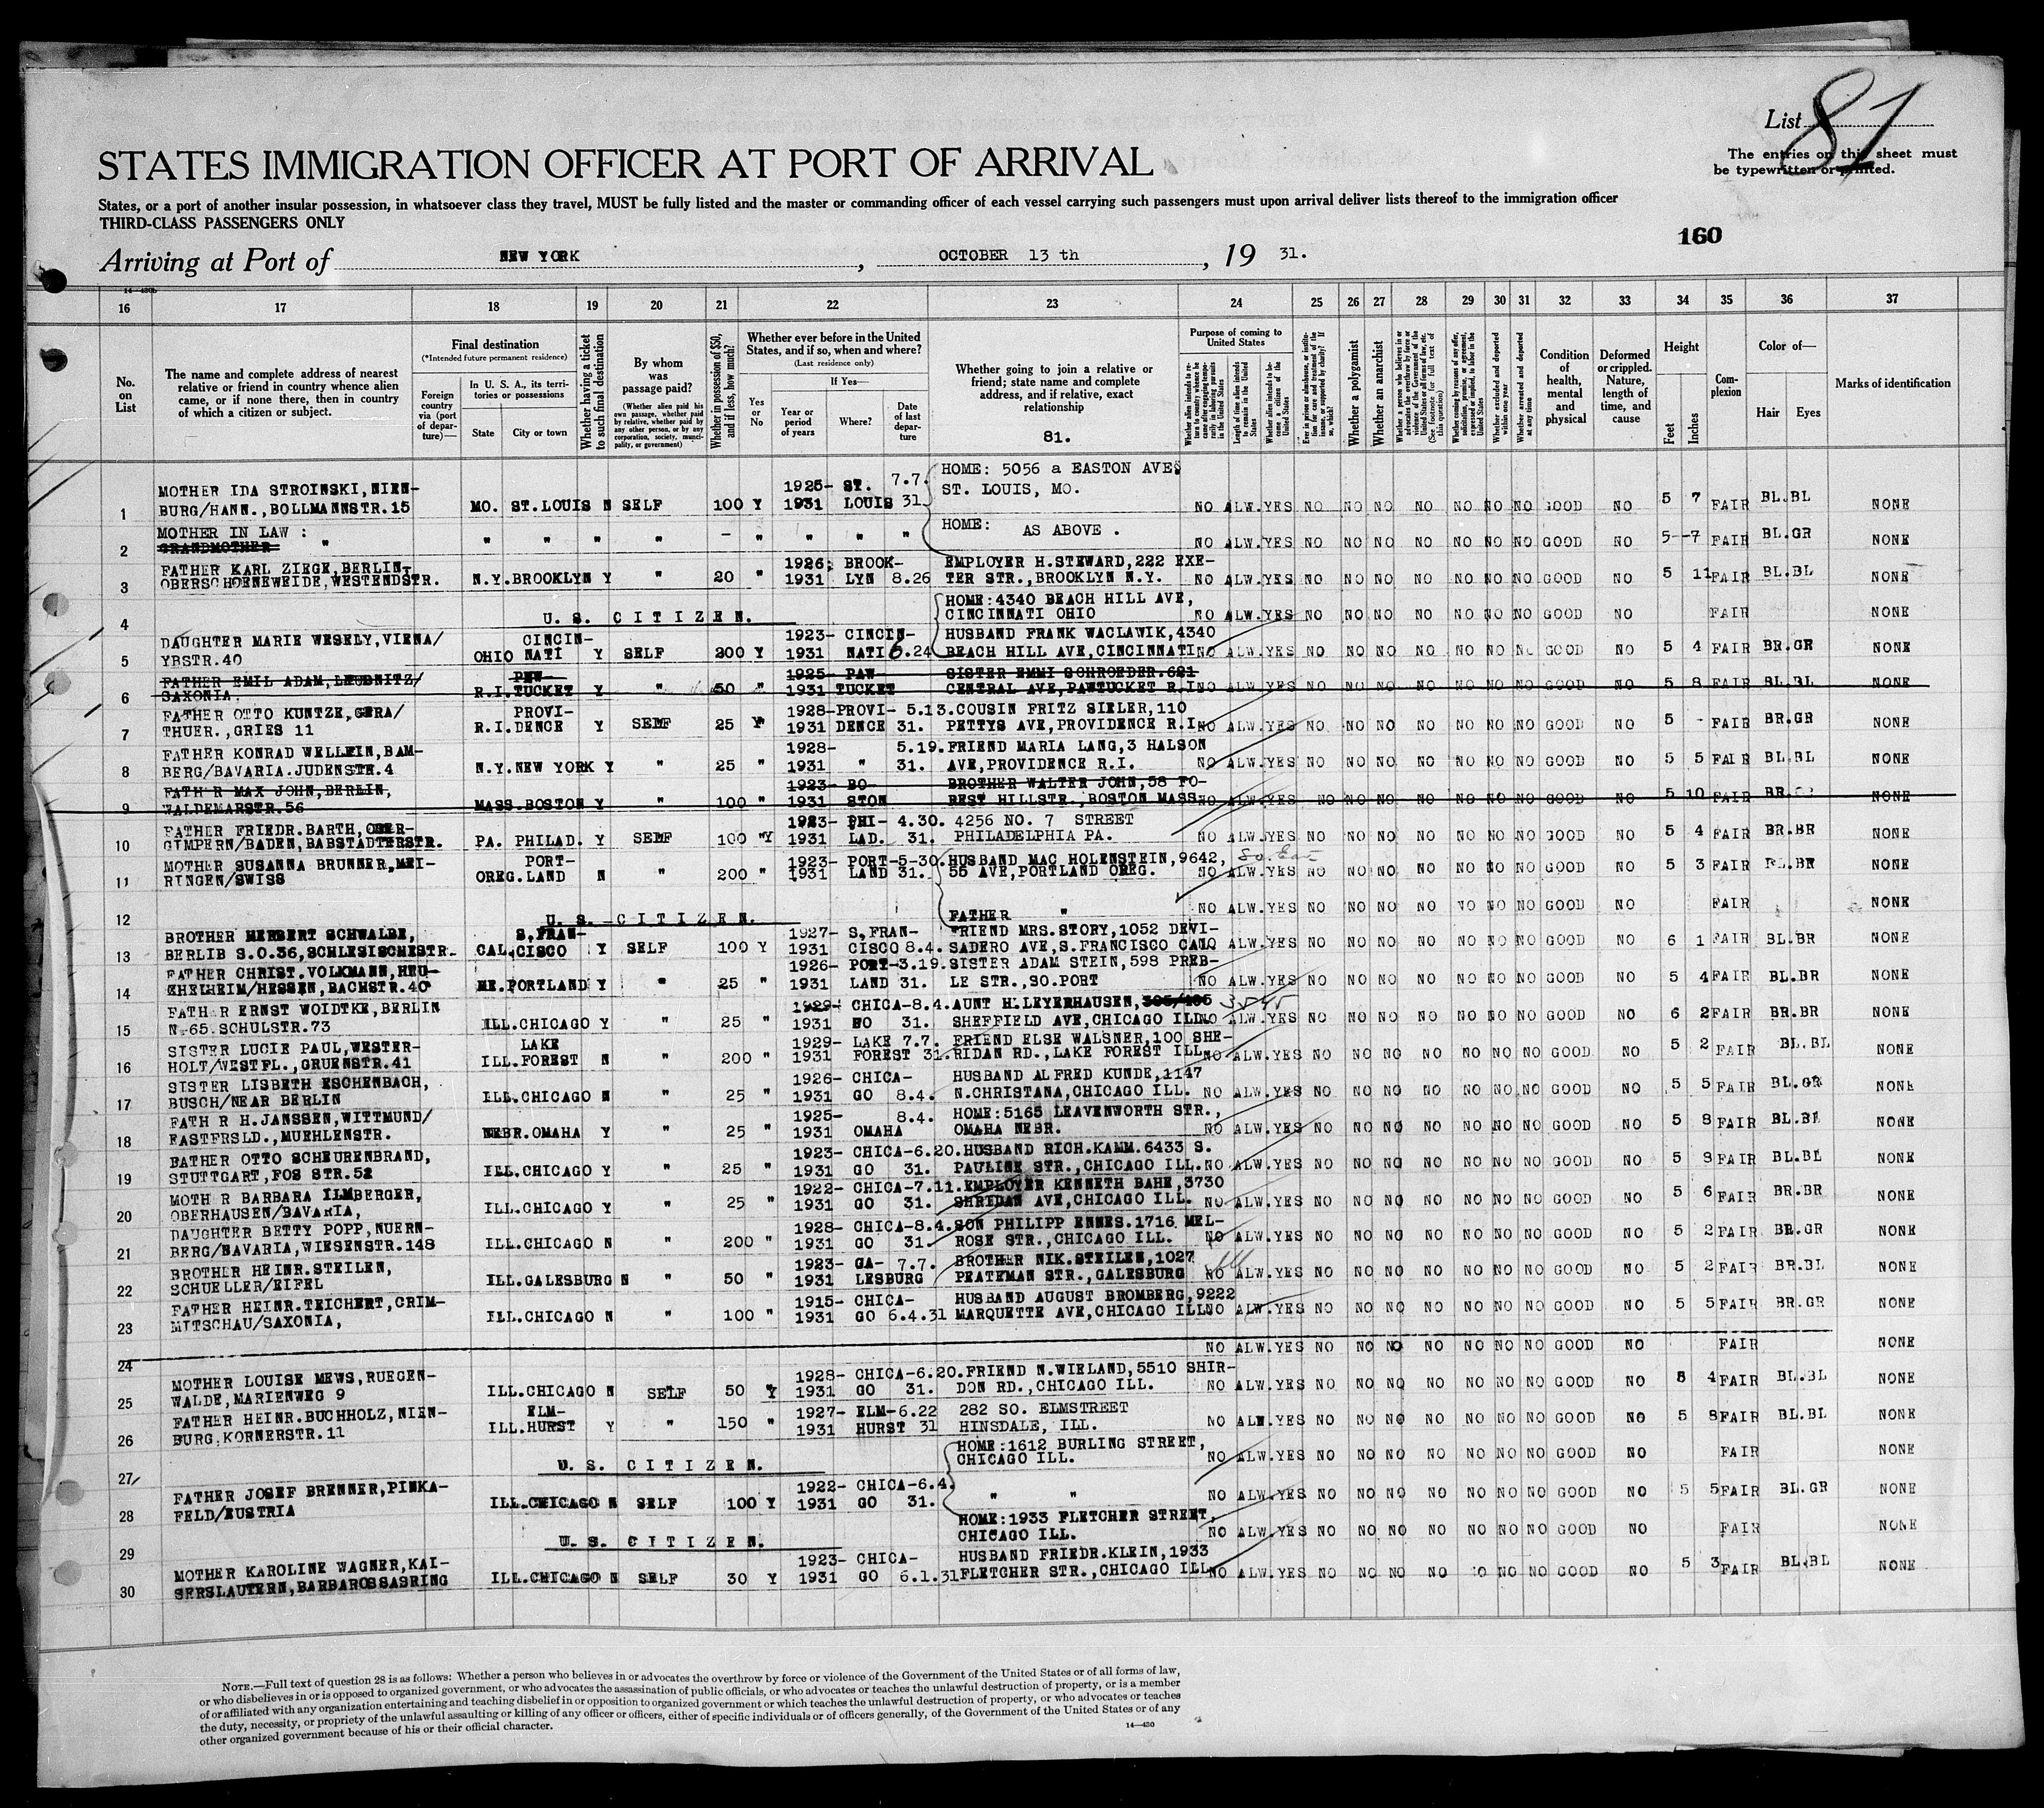 List 81
The entries on this sheet must
be typewritten or printed.
STATES IMMIGRATION OFFICER AT PORT OF ARRIVAL
States, or a port of another insular possession, in whatsoever class they travel, MUST be fully listed and the master or commanding officer of each vessel carrying such passengers must upon arrival deliver lists thereof to the immigration officer
THIRD-CLASS PASSENGERS ONLY
160
Arriving at Port of NEW YORK, OCTOBER 13 th, 19 31.
16 17 18 19 20 21 22 23 24 25 26 27 28 29 30 31 32 33 34 35 36 37
No. on List
The name and complete address of nearest relative or friend in country whence alien came, or if none there, then in country of which a citizen or subject.
Final destination
(*Intended future permanent residence)
Foreign country via (port of departure)—
In U. S. A., its territories or possessions
State
City or town
Whether having a ticket to such final destination
By whom was passage paid?
(Whether alien paid his own passage, whether paid by relative, whether paid by any other person, or by any corporation, society, municipality, or government)
Whether in possession of $50, and if less, how much?
Whether ever before in the United States, and if so, when and where?
(Last residence only)
Yes or No
If Yes—
Year or period of years
Where?
Date of last departure
Whether going to join a relative or friend; state name and complete address, and if relative, exact relationship
81.
Purpose of coming to United States
Length of time alien intends to remain in the United States
Whether alien intends to become a citizen of the United States
Whether a polygamist
Whether an anarchist
Whether excluded and deported within one year
Whether arrested and deported at any time
Condition of health, mental and physical
Deformed or crippled. Nature, length of time, and cause
Height
Feet
Inches
Complexion
Color of—
Hair
Eyes
Marks of identification
HOME: 5056 a EASTON AVE,
MOTHER IDA STROINSKI, NIEN- 1925- ST. 7.7. ST. LOUIS, MO.
1 BURG/HANN.,BOLLMANNSTR.15 MO. ST.LOUIS N SELF 100 Y 1931 LOUIS 31 NO ALW.YES NO NO NO NO NO NO NO GOOD NO 5 7 FAIR BL.BL NONE
MOTHER IN LAW : HOME:
2 GRANDMOTHER " " " " " - " " " " AS ABOVE . NO ALW.YES NO NO NO NO NO NO NO GOOD NO 5--7 FAIR BL.GR NONE
FATHER KARL ZIEGE,BERLIN- 1926; BROOK- EMPLOYER H.STEWARD,222 EXE-
3 OBERSCHOENEWEIDE,WESTENDSTR. N.Y.BROOKLYN Y " 20 " 1931 LYN 8.26 TER STR.,BROOKLYN N.Y. NO ALW.YES NO NO NO NO NO NO NO GOOD NO 5 11 FAIR BL.BL NONE
HOME:4340 BEACH HILL AVE,
4 U. S. C I T I Z E N. CINCINNATI OHIO NO ALW.YES NO NO NO NO NO NO NO GOOD NO FAIR NONE
DAUGHTER MARIE WESELY,VIENA/ CINCIN- 1923- CINCIN- HUSBAND FRANK WACLAWIK,4340
5 YBSTR.40 OHIO NATI Y SELF 200 Y 1931 NATI 6.24 BEACH HILL AVE,CINCINNATI NO ALW.YES NO NO NO NO NO NO NO GOOD NO 5 4 FAIR BR.GR NONE
FATHER EMIL ADAM,LEUBNITZ/ PEW- 1925- PAW- SISTER EMMI SCHROEDER.621
6 SAXONIA. R.I.TUCKET Y " 50 " 1931 TUCKET CENTRAL AVE,PAWTUCKET R.I NO ALW YES NO NO NO NO NO NO NO GOOD NO 5 8 FAIR BL.BL NONE
FATHER OTTO KUNTZE,GERA/ PROVI- 1928-PROVI- 5.13.COUSIN FRITZ SIELER,110
7 THUER.,GRIES 11 R.I.DENCE Y SELF 25 Y 1931 DENCE 31. PETTYS AVE,PROVIDENCE R.I NO ALW.YES NO NO NO NO NO NO NO GOOD NO 5 - FAIR BR.GR NONE
FATHER KONRAD WELLEIN,BAM- 1928- 5.19.FRIEND MARIA LANG,3 HALSON
8 BERG/BAVARIA.JUDENSTR.4 N.Y.NEW YORK Y " 25 " 1931 " 31. AVE,PROVIDENCE R.I. NO ALW.YES NO NO NO NO NO NO NO GOOD NO 5 5 FAIR BL.BL NONE
FATH R MAX JOHN,BERLIN, 1923- BO- BROTHER WALTER JOHN,58 FO-
9 WALDEMARSTR.56 MASS.BOSTON Y " 100 " 1931 STON REST HILLSTR.,BOSTON MASS. NO ALW.YES NO NO NO NO NO NO NO GOOD NO 5 10 FAIR BR. NONE
FATHER FRIEDR.BARTH,OBER- 1923- PHI- 4.30. 4256 NO. 7 STREET
10 GIMPERN/BADEN,BABSTADTERSTR. PA. PHILAD. Y SELF 100 "Y 1931 LAD. 31. PHILADELPHIA PA. NO ALW.YES NO NO NO NO NO NO NO GOOD NO 5 4 FAIR BR.BR NONE
MOTHER SUSANNA BRUNNER,MEI- PORT- 1923- PORT-5-30.HUSBAND MAC HOLENSTEIN,9642, So. East
11 RINGEN/SWISS OREG.LAND N " 200 " 1931 LAND 31. 55 AVE,PORTLAND OREG. NO ALW.YES NO NO NO NO NO NO NO GOOD NO 5 3 FAIR BL.BR NONE
12 U. S. C I T I Z E N. FATHER " NO ALW.YES NO NO NO NO NO NO NO GOOD NO FAIR NONE
BROTHER HERBERT SCHWALBE, S,FRAN- 1927- S,FRAN- FRIEND MRS.STORY,1052 DEVI-
13 BERLIB S.O.36,SCHLESISCHESTR. CAL.CISCO Y SELF 100 Y 1931 CISCO 8.4. SADERO AVE,S.FRANCISCO CAL NO ALW.YES NO NO NO NO NO NO NO GOOD NO 6 1 FAIR BL.BR NONE
FATHER CHRIST.VOLKMANN,HEU- 1926- PORT-3.19.SISTER ADAM STEIN,598 PREB-
14 CHELHEIM/HESSEN,BACHSTR.40 ME.PORTLAND Y " 25 " 1931 LAND 31. LE STR.,SO.PORT NO ALW.YES NO NO NO NO NO NO NO GOOD NO 5 4 FAIR BL.BR NONE
FATH R ERNST WOIDTKE,BERLIN 1929- CHICA-8.4.AUNT H.LEYERHAUSEN,
15 N-65.SCHULSTR.73 ILL.CHICAGO Y " 25 " 1931 GO 31. SHEFFIELD AVE,CHICAGO ILL NO ALW.YES NO NO NO NO NO NO NO GOOD NO 6 2 FAIR BR.BR NONE
SISTER LUCIE PAUL,WESTER- LAKE 1929- LAKE 7.7. FRIEND ELSE WALSNER,100 SHE-
16 HOLT/WESTFL.,GRUENSTR.41 ILL.FOREST N " 200 " 1931 FOREST 31.RIDAN RD.,LAKE FOREST ILL NO ALW.YES NO NO NO NO NO NO NO GOOD NO 5 2 FAIR BL.BL NONE
SISTER LISBETH ESCHENBACH, 1926- CHICA- HUSBAND ALFRED KUNDE,1147
17 BUSCH/NEAR BERLIN ILL.CHICAGO N " 25 " 1931 GO 8.4. N.CHRISTANA,CHICAGO ILL. NO ALW.YES NO NO NO NO NO NO NO GOOD NO 5 5 FAIR BL.GR NONE
FATH R H.JANSSEN,WITTMUND/ 1925- 8.4. HOME:5165 LEAVENWORTH STR.,
18 EASTFRSLD.,MUEHLENSTR. NEBR.OMAHA Y " 25 " 1931 OMAHA OMAHA NEBR. NO ALW.YES NO NO NO NO NO NO NO GOOD NO 5 8 FAIR BL.BL NONE
FATHER OTTO SCHEURENBRAND, 1923- CHICA-6.20.HUSBAND RICH.KAMM.6433 S.
19 STUTTGART,FOS STR.52 ILL.CHICAGO Y " 25 " 1931 GO 31. PAULINE STR.,CHICAGO ILL. NO ALW.YES NO NO NO NO NO NO NO GOOD NO 5 8 FAIR BL.BL NONE
MOTH R BARBARA ILMBERGER, 1922- CHICA-7.11.EMPLOYER KENNETH BAHE,3730
20 OBERHAUSEN/BAVARIA, ILL.CHICAGO Y " 25 " 1931 GO 31. SHRIDAN AVE,CHICAGO ILL. NO ALW.YES NO NO NO NO NO NO NO GOOD NO 5 6 FAIR BR.BR NONE
DAUGHTER BETTY POPP,NUERN- 1928- CHICA-8.4.SON PHILIPP ENNES.1716 MEL-
21 BERG/BAVARIA,WIESENSTR.148 ILL.CHICAGO N " 200 " 1931 GO 31. ROSE STR.,CHICAGO ILL. NO ALW.YES NO NO NO NO NO NO NO GOOD NO 5 2 FAIR BR.GR NONE
BROTHER HEINR.STEILEN, 1923- GA- 7.7. BROTHER NIK.STEILEN,1027
22 SCHUELLER/EIFEL ILL.GALESBURG N " 50 " 1931 LESBURG PEATEMAN STR.,GALESBURG NO ALW.YES NO NO NO NO NO NO NO GOOD NO 5 2 FAIR BR.BL NONE
FATHER HEINR.TEICHERT,CRIM- 1915- CHICA- HUSBAND AUGUST BROMBERG,9222
23 MITSCHAU/SAXONIA, ILL.CHICAGO N " 100 " 1931 GO 6.4.31 MARQUETTE AVE,CHICAGO ILL NO ALW.YES NO NO NO NO NO NO NO GOOD NO 5 5 FAIR BR.GR NONE
24 NO ALW.YES NO NO NO NO NO NO NO GOOD NO FAIR NONE
MOTHER LOUISE MEWS,RUEGEN- 1928- CHICA-6.20.FRIEND N.WIELAND,5510 SHIR-
25 WALDE,MARIENWEG 9 ILL.CHICAGO N SELF 50 Y 1931 GO 31. DON RD.,CHICAGO ILL. NO ALW.YES NO NO NO NO NO NO NO GOOD NO 5 4 FAIR BL.BL NONE
FATHER HEINR.BUCHHOLZ,NIEN- ELM- 1927- ELM-6.22 282 SO. ELMSTREET
26 BURG.KORNERSTR.11 ILL.HURST Y " 150 " 1931 HURST 31 HINSDALE, ILL. NO ALW.YES NO NO NO NO NO NO NO GOOD NO 5 8 FAIR BL.BL NONE
HOME:1612 BURLING STREET,
27 U. S. C I T I Z E N. CHICAGO ILL. NO ALW.YES NO NO NO NO NO NO NO GOOD NO FAIR NONE
FATHER JOSEF BRENNER,PINKA- 1922- CHICA-6.4.
28 FELD/EUSTRIA ILL.CHICAGO N SELF 100 Y 1931 GO 31. " " NO ALW.YES NO NO NO NO NO NO NO GOOD NO 5 5 FAIR BL.GR NONE
HOME:1933 FLETCHER STREET,
29 U. S. C I T I Z E N. CHICAGO ILL. NO ALW.YES NO NO NO NO NO NO NO GOOD NO FAIR NONE
MOTHER KAROLINE WAGNER,KAI- 1923- CHICA- HUSBAND FRIEDR.KLEIN,1933
30 SERSLAUTERN,BARBAROSSASRING ILL.CHICAGO N SELF 30 Y 1931 GO 6.1.31 FLETCHER STR.,CHICAGO ILL NO ALW.YES NO NO NO NO NO NO NO GOOD NO 5 3 FAIR BL.BL NONE
NOTE.—Full text of question 28 is as follows: Whether a person who believes in or advocates the overthrow by force or violence of the Government of the United States or of all forms of law,
or who disbelieves in or is opposed to organized government, or who advocates the assassination of public officials, or who advocates or teaches the unlawful destruction of property, or is a member
of or affiliated with any organization entertaining and teaching disbelief in or opposition to organized government or which teaches the unlawful destruction of property, or who advocates or teaches
the duty, necessity, or propriety of the unlawful assaulting or killing of any officer or officers, either of specific individuals or of officers generally, of the Government of the United States or of any
other organized government because of his or their official character.
14—430